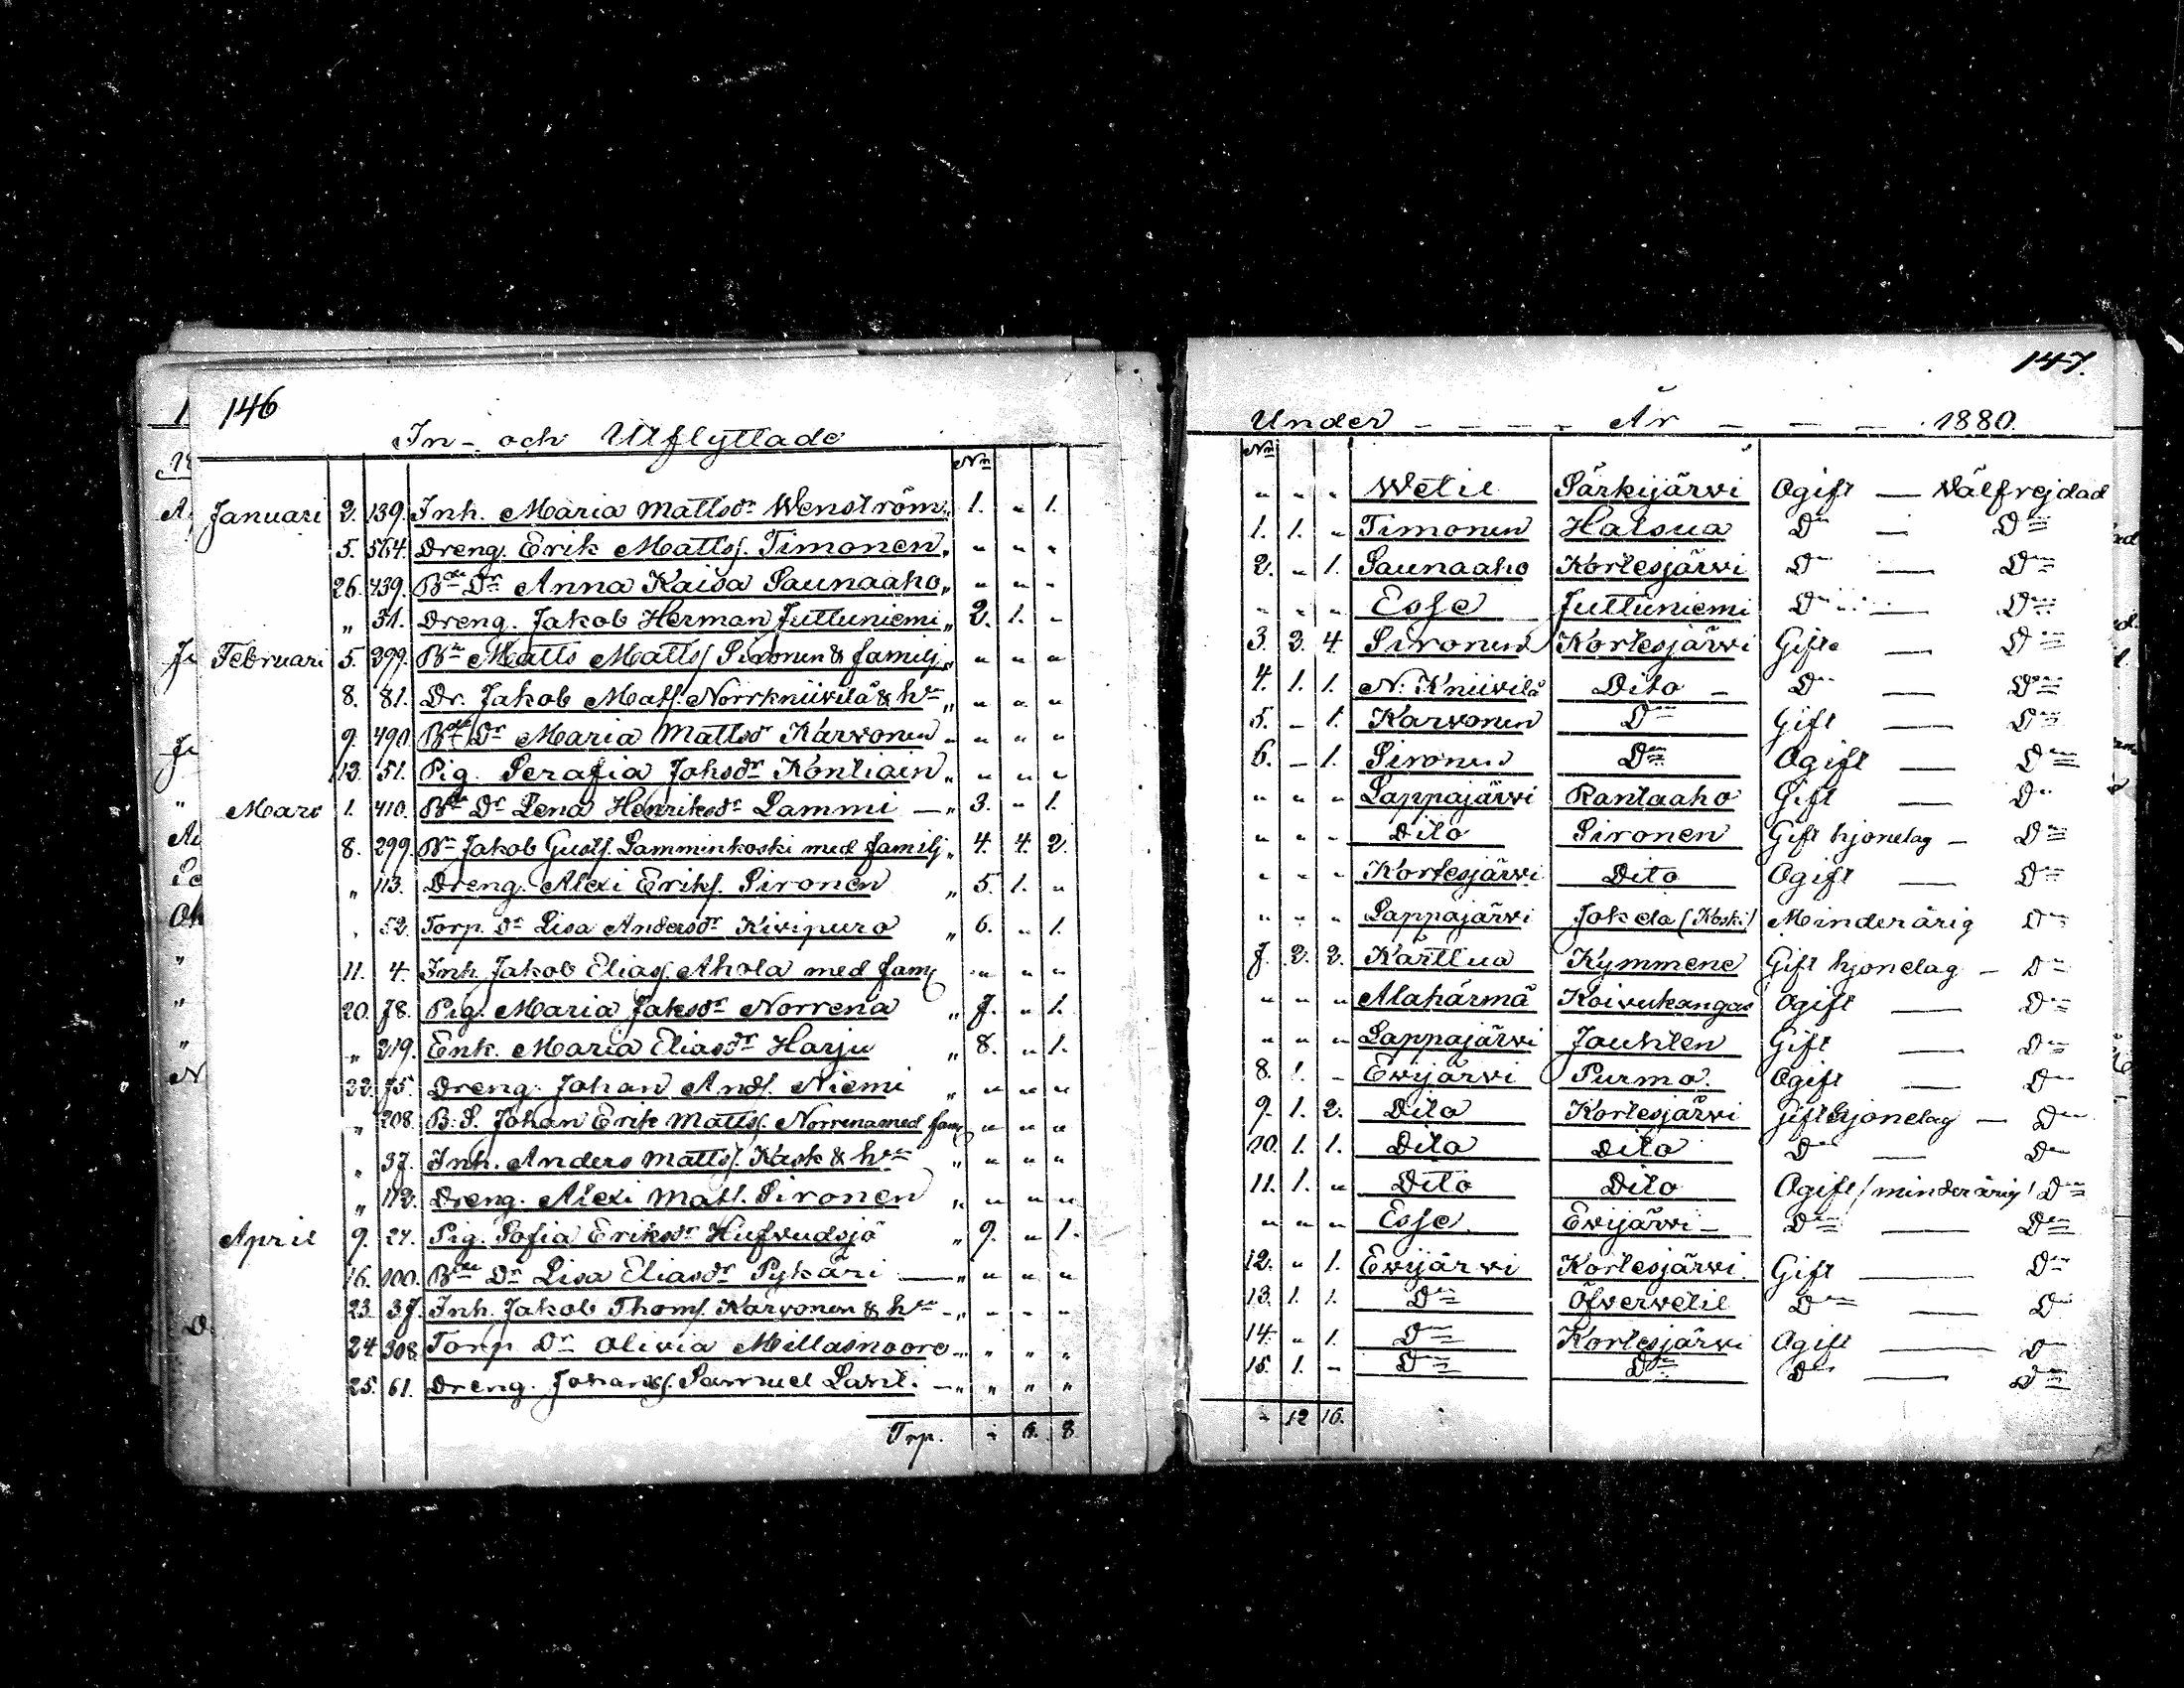 146
In- och Utflyttade
No
Januari 2. 139. Inh. Maria Mattsdr Wenström „ 1. „ 1.
5. 564. Dreng. Erik Mattsf. Timonen „ „ „ „
26. 439. Bde Dr Anna Kaisa Saunaaho „ „ „ „
„ 31. Dreng. Jakob Herman Juttuniemi „ 2. 1. „
Februari 5. 399. Bn Matts Mattsf Sironen & familj „ „ „ „
8. 81. Dr. Jakob Matsf. Norrkniivilä & hu „ „ „ „
9. 490. Bde Dr Maria Mattsdr Karvonen „ „ „ „
13. 51. Pig. Serafia Johsdr Kontiain „ „ „ „
Mars 1. 410. Bde Dr Lena Henriksdr Lammi — „ 3. „ 1.
8. 299. Bn Jakob Gustf. Lamminkoski med familj „ 4. 4. 2.
„ 113. Dreng. Alexi Eriksf. Sironen „ 5. 1. „
„ 52. Torp. Dr Lisa Andersdr Kivipuro „ 6. „ 1.
11. 4. Inh. Jakob Eliasf. Ahola med famj „ „ „
20. 78. Pig. Maria Jaksdr Norrena „ 7. „ 1.
„ 219. Enk. Maria Eliasdr Harju „ 8. „ 1.
22. 75. Dreng. Johan Andsf. Niemi „ „ „ „
„ 208. B. S. Johan Erik Mattsf. Norrena med famj „ „ „
„ 37. Inh. Anders Mattsf. Kask & hu „ „ „ „
„ 112. Dreng. Alexi Matsf. Sironen „ „ „ „
April 9. 27. Pig. Sofia Eriksdr Hufvudsjö „ 9. „ 1.
16. 100. Bde Dr Lisa Eliasdr Pykäri — „ „ „ „
23. 37. Inh. Jakob Thomsf. Karvonen & hu - „ „ „ „
24. 308. Torp. Dr Olivia Millasnoore - „ „ „ „
25. 61. Dreng. Johansf. Samuel Lanti — „ „ „ „
Trp. „ 6. 8
147.
Under - - - - År - - - 1880.
No
„ „ „ Wetil Särkijärvi Ogift — Välfrejdad
1. 1. „ Timonen Halsua Do — Do
2. „ 1. Saunaaho Kortesjärvi Do — Do
„ „ „ Esse Juttuniemi Do — Do
3. 3. 4. Sironen Kortesjärvi Gifte — Do
4. 1. 1. N. Kniivilä Dito - Do — Do
5. - 1. Karvonen Do Gift — Do
6. - 1. Sironen Do Ogift — Do
„ „ „ Lappajärvi Rantaaho Gift — Do
„ „ „ Dito Sironen Gift hjonelag - Do
„ „ „ Kortesjärvi Dito Ogift — Do
„ „ „ Lappajärvi Jokela (Koski) Minderårig Do
7. 2. 2. Kärttua Kymmene Gift hjonelag - Do
„ „ „ Alahärmä Koivukangas Ogift — Do
„ „ „ Lappajärvi Jauhten Gift — Do
8. 1. - Evijärvi Purmo. Ogift — Do
9. 1. 2. Dito Kortesjärvi Gift hjonelag — Do
10. 1. 1. Dito Dito Do — Do
11. 1. „ Dito Dito Ogift (minderårig) Do
„ „ „ Esse. Evijärvi - Do — Do
12. „ 1. Evijärvi Kortesjärvi Gift — Do
13. 1. 1. Do Öfvervetil Do — Do
14. „ 1. Do Kortesjärvi Ogift — Do
15. 1. - Do Do Do — Do
„ 12 16.